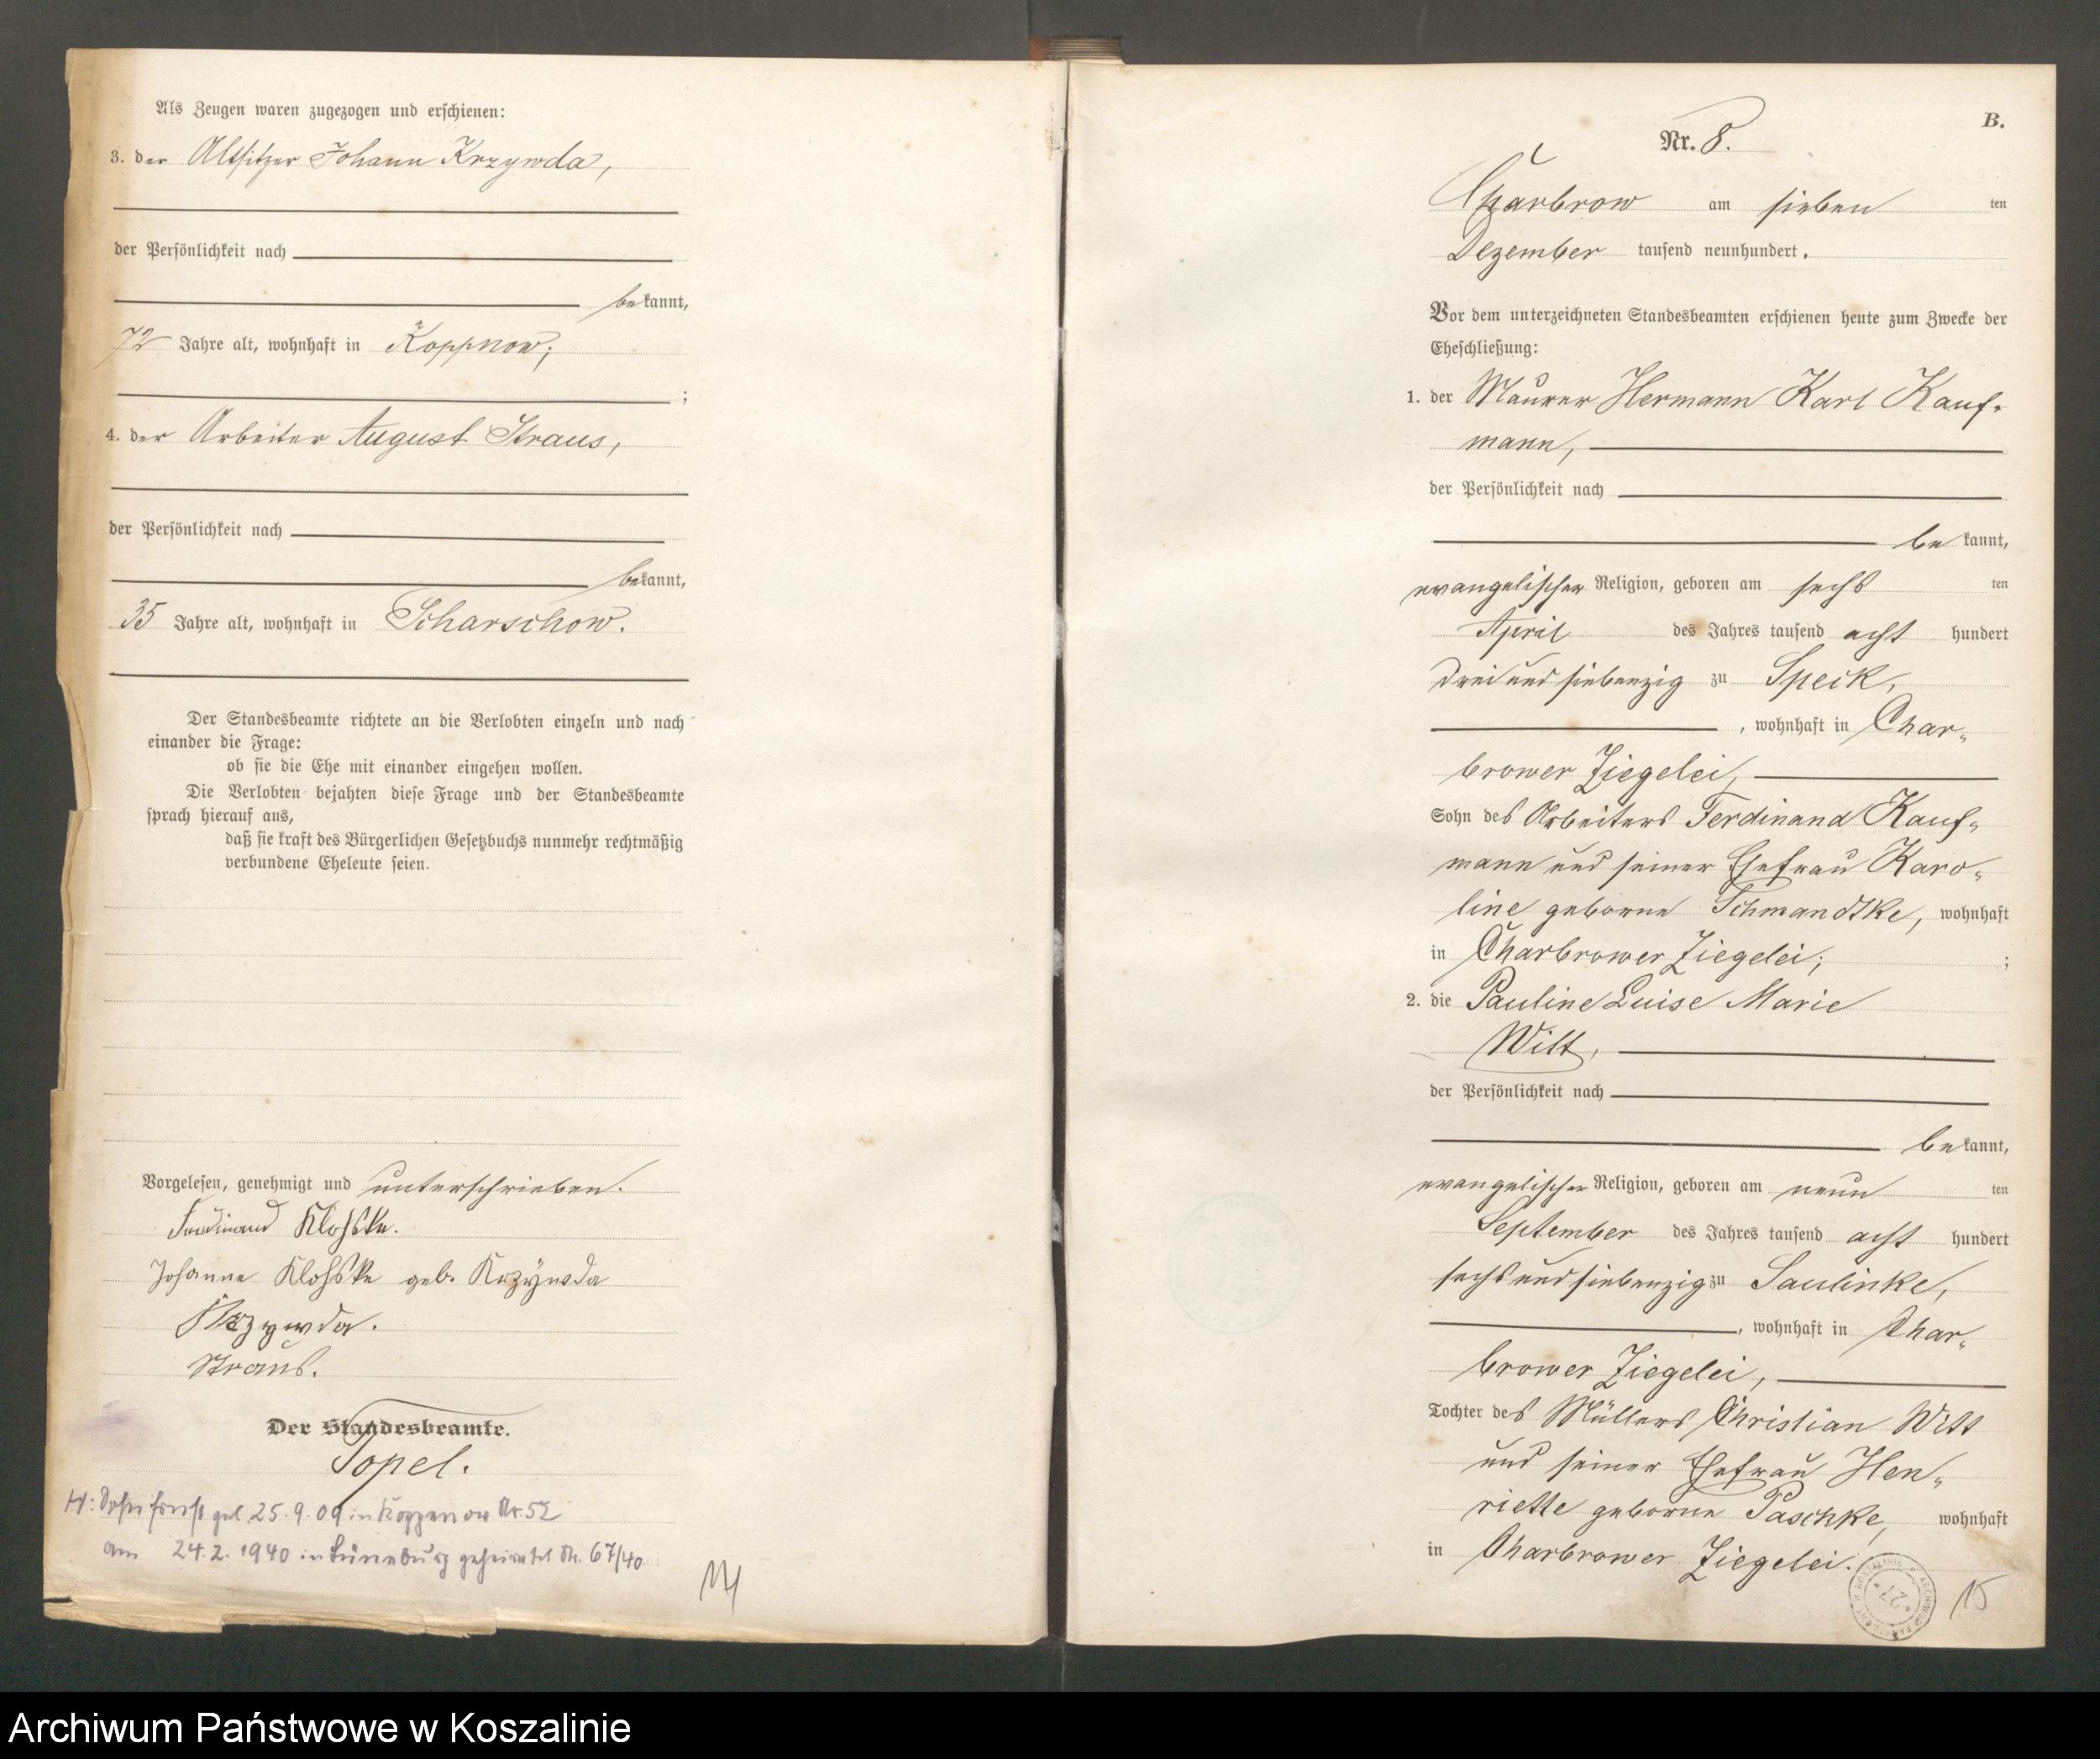 Als Zeugen waren zugezogen und erschienen:
3. der Altsitzer Johann Krzywda,
der Persönlichkeit nach
bekannt,
72 Jahre alt, wohnhaft in Koppnow;
;
4. der Arbeiter August Straus,
der Persönlichkeit nach
bekannt,
35 Jahre alt, wohnhaft in Scharschow.
Der Standesbeamte richtete an die Verlobten einzeln und nach
einander die Frage:
ob sie die Ehe mit einander eingehen wollen.
Die Verlobten bejahten diese Frage und der Standesbeamte
sprach hierauf aus,
daß sie kraft des Bürgerlichen Gesetzbuchs nunmehr rechtmäßig
verbundene Eheleute seien.
Vorgelesen, genehmigt und unterschrieben.
Ferdinand Klohske.
Johanne Klohske geb. Krzÿwda
Krzywda.
Straus.
Der Standesbeamte.
Topel.
H: Sohn Ernst geb. 25.9.09 in Koppenow Nr. 52
am 24.2.1940 in Lüneburg geheiratet Nr. 67/40
14
B.
Nr. 8.
Charbrow am sieben ten
Dezember tausend neunhundert.
Vor dem unterzeichneten Standesbeamten erschienen heute zum Zwecke der
Eheschließung:
1. der Maurer Hermann Karl Kauf-
mann,
der Persönlichkeit nach
be kannt,
evangelischer Religion, geboren am sechs ten
April des Jahres tausend acht hundert
drei und siebenzig zu Speck,
, wohnhaft in Char-
brower Ziegelei,
Sohn des Arbeiters Ferdinand Kauf-
mann und seiner Ehefrau Karo-
line geborne Schmandtke, wohnhaft
in Charbrower Ziegelei; ;
2. die Pauline Luise Marie
Witt,
der Persönlichkeit nach
bekannt,
evangelischer Religion, geboren am neun ten
September des Jahres tausend acht hundert
sechs und siebenzig zu Saulinke,
, wohnhaft in Char-
brower Ziegelei,
Tochter des Müllers Christian Witt
und seiner Ehefrau Hen-
riette geborne Paschke, wohnhaft
in Charbrower Ziegelei.
15
Archiwum Państwowe w Koszalinie